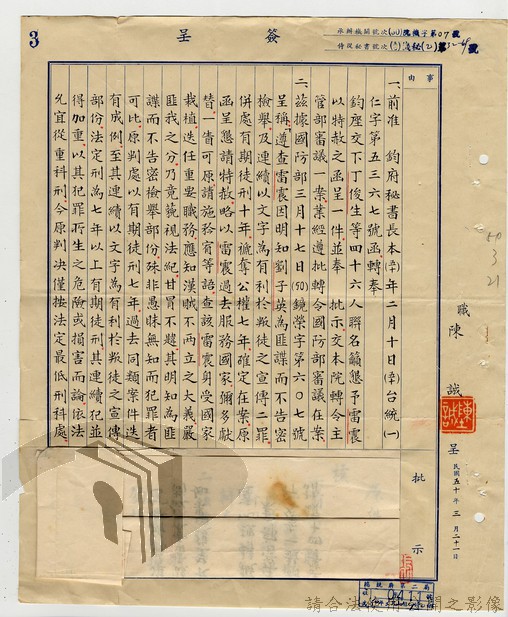 3
簽呈
承辦機關號次(50)機字第07號
事由
一、前准　鈞府秘書長本(50)年二月十日(50)台統(一)
仁字第五三六七號函、轉奉
鈞座交下丁俊生等四十六人聯名籲懇予雷震
以特赦之函呈一件並奉　批示、交本院轉令主
管部審議一案、業經遵批轉令國防部審議在案
二、茲據國防部三月十七日(50)鏡榮字第六〇七號
呈稱、遵查雷震因明知劉子英為匪諜而不告密
檢舉、及連續以文字為有利於叛徒之宣傳二罪、
併處有期徒刑十年、褫奪公權七年、確定在案、原
函呈懇請特赦、略以雷震過去服務國家、彌多獻
替、一眚可原、請施矜宥等語、查該雷震身受國家
栽植、迭任重要職務、應知漢賊不兩立之大義、嚴
匪我之分、乃竟藐視法紀、甘冒不韙、其明知為匪
諜而不告密檢舉部份、殊非愚昧無知而犯罪者
可比、原判處以有期徒刑七年、過去同類案件迭
有成例、至其連續以文字為有利於叛徒之宣傳
部份、法定刑為七年以上有期徒刑、其連續犯並
得加重、以其犯罪所生之危險或損害而論、依法
允宜從重科刑、今原判決僅按法定最低刑科處、
批示
職陳誠呈
陳誠
民國五十年三月二十一日
50
3
21
總統府第二局
請合法使用公開之影像